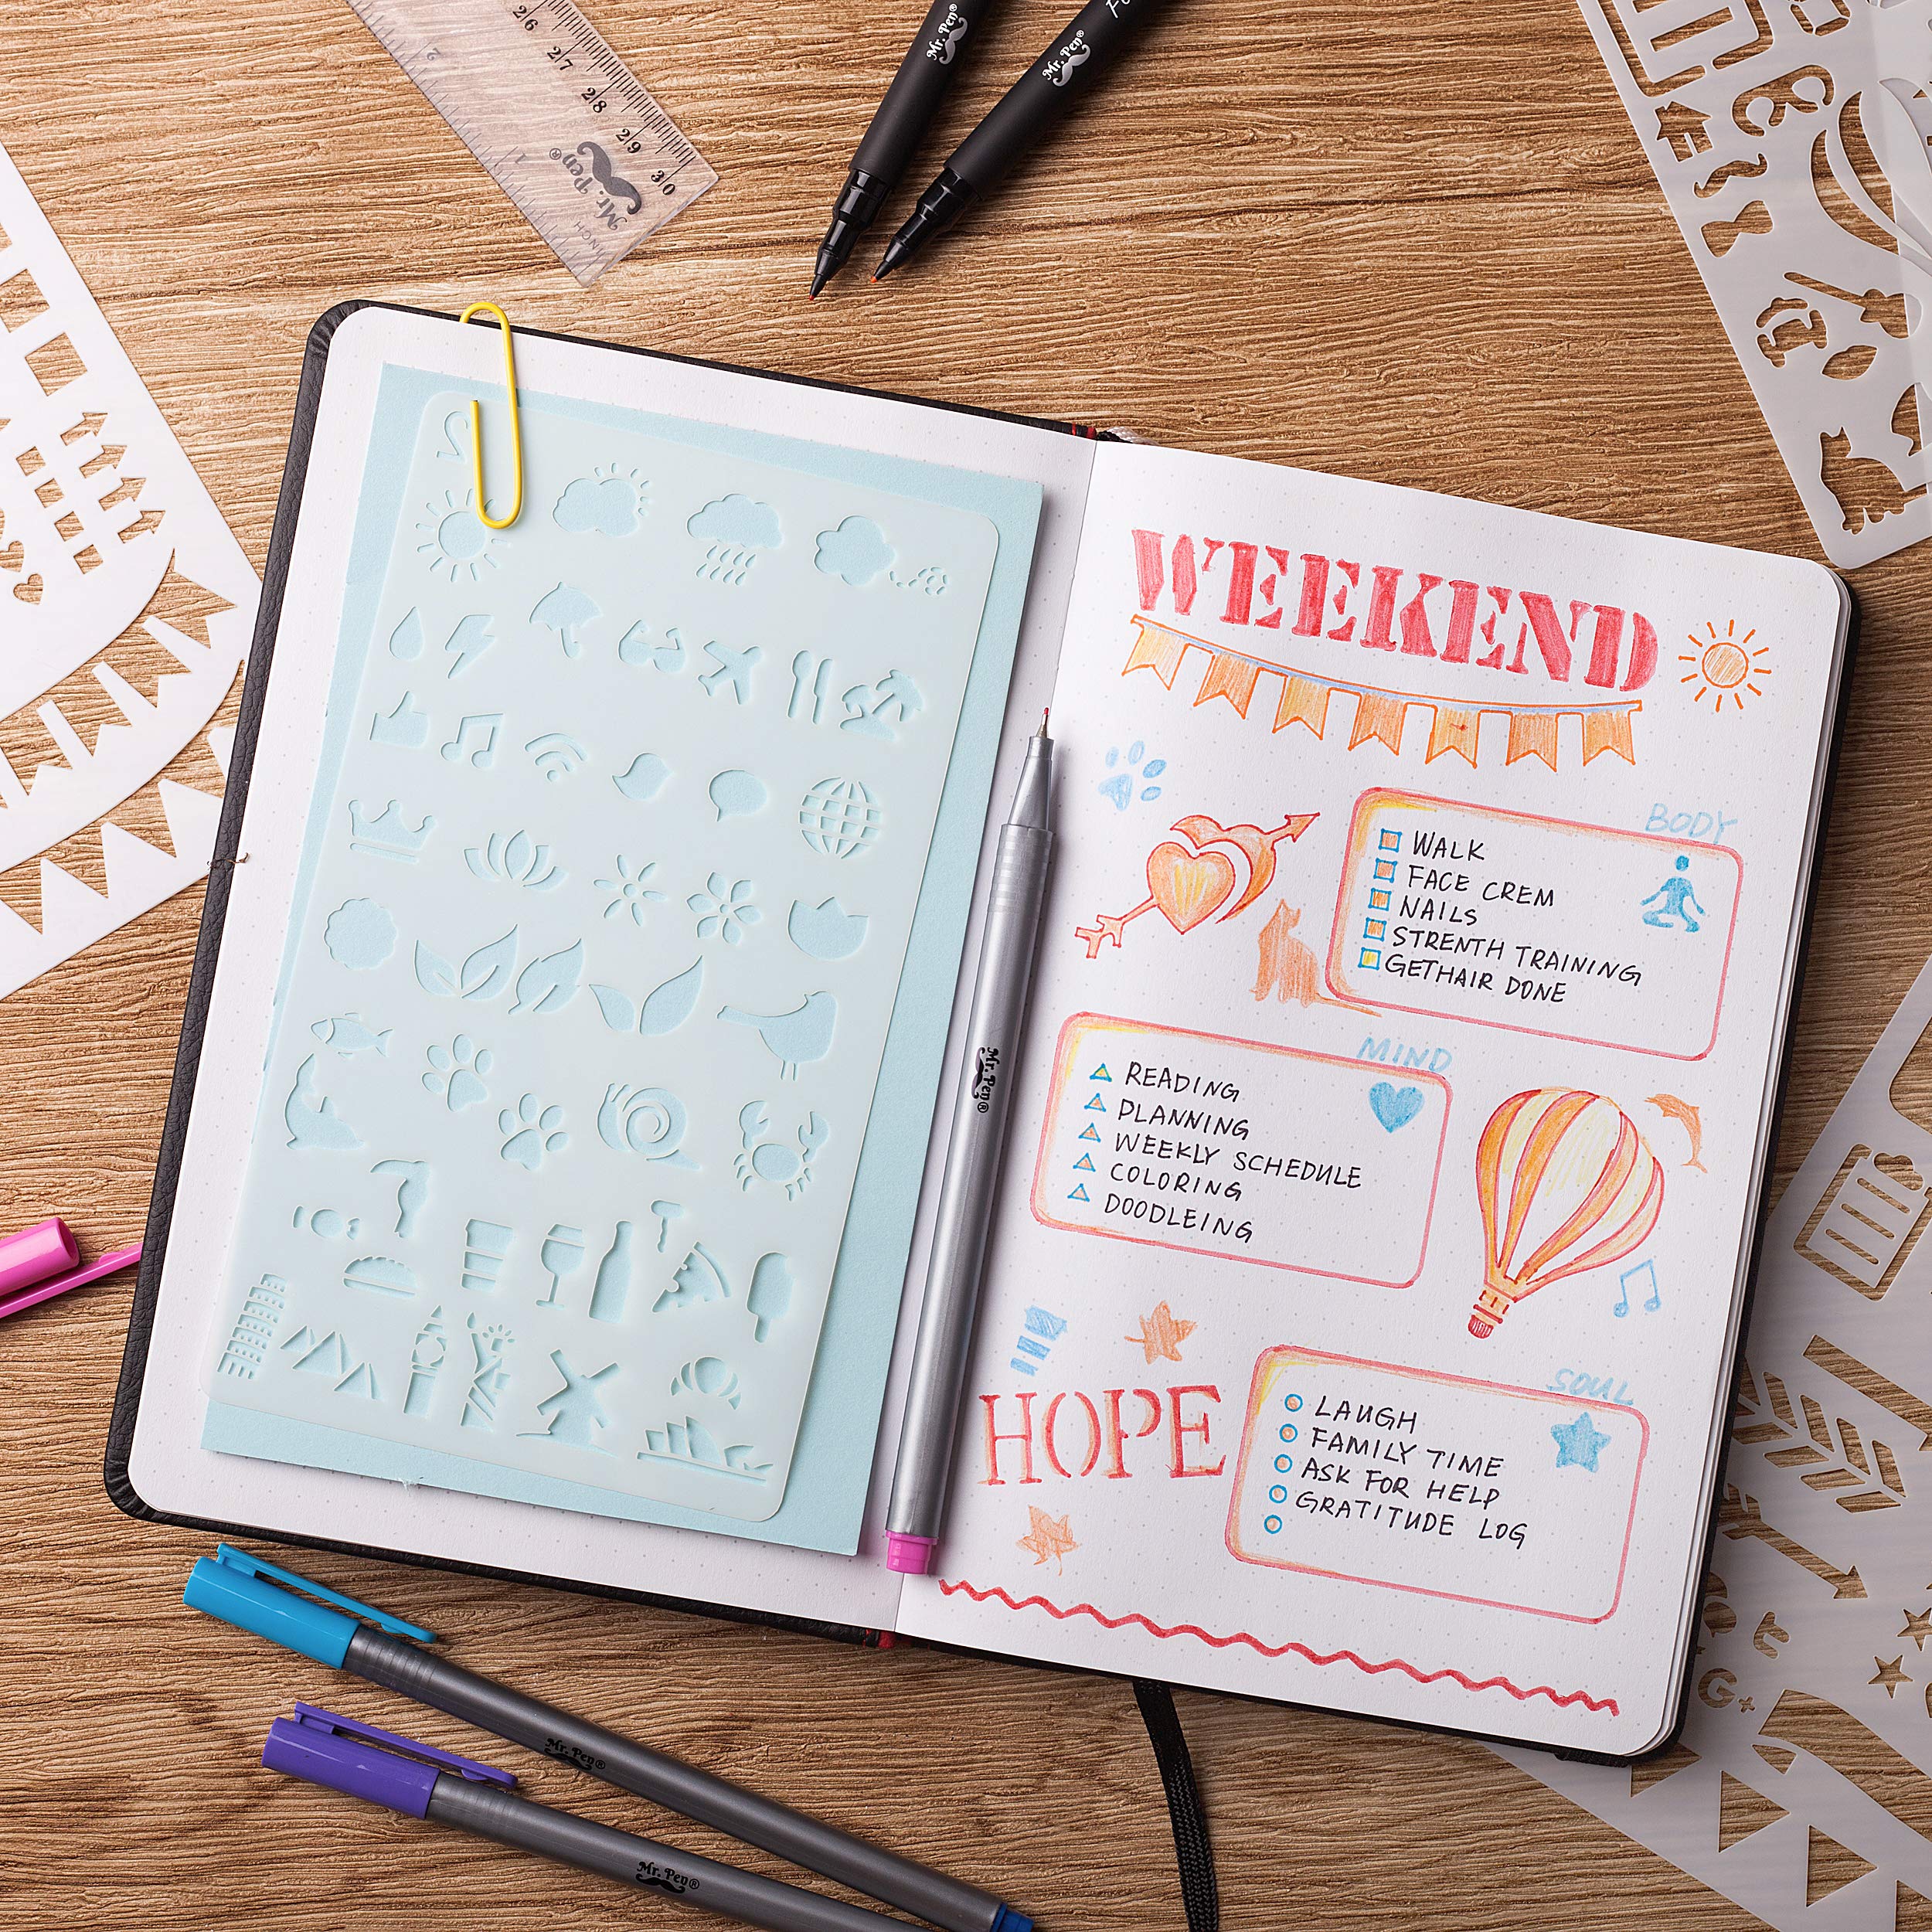 26
27
28
29
30
2
1
Mr. Pen®
INCH
Mr. Pen®
Mr. Pen®
WEEKEND
BODY
WALK
FACE CREM
NAILS
STRENTH TRAINING
GETHAIR DONE
MIND
READING
PLANNING
WEEKLY SCHEDULE
COLORING
DOODLEING
Mr. Pen®
HOPE
SOUL
LAUGH
FAMILY TIME
ASK FOR HELP
GRATITUDE LOG
Mr. Pen®
Mr. Pen®